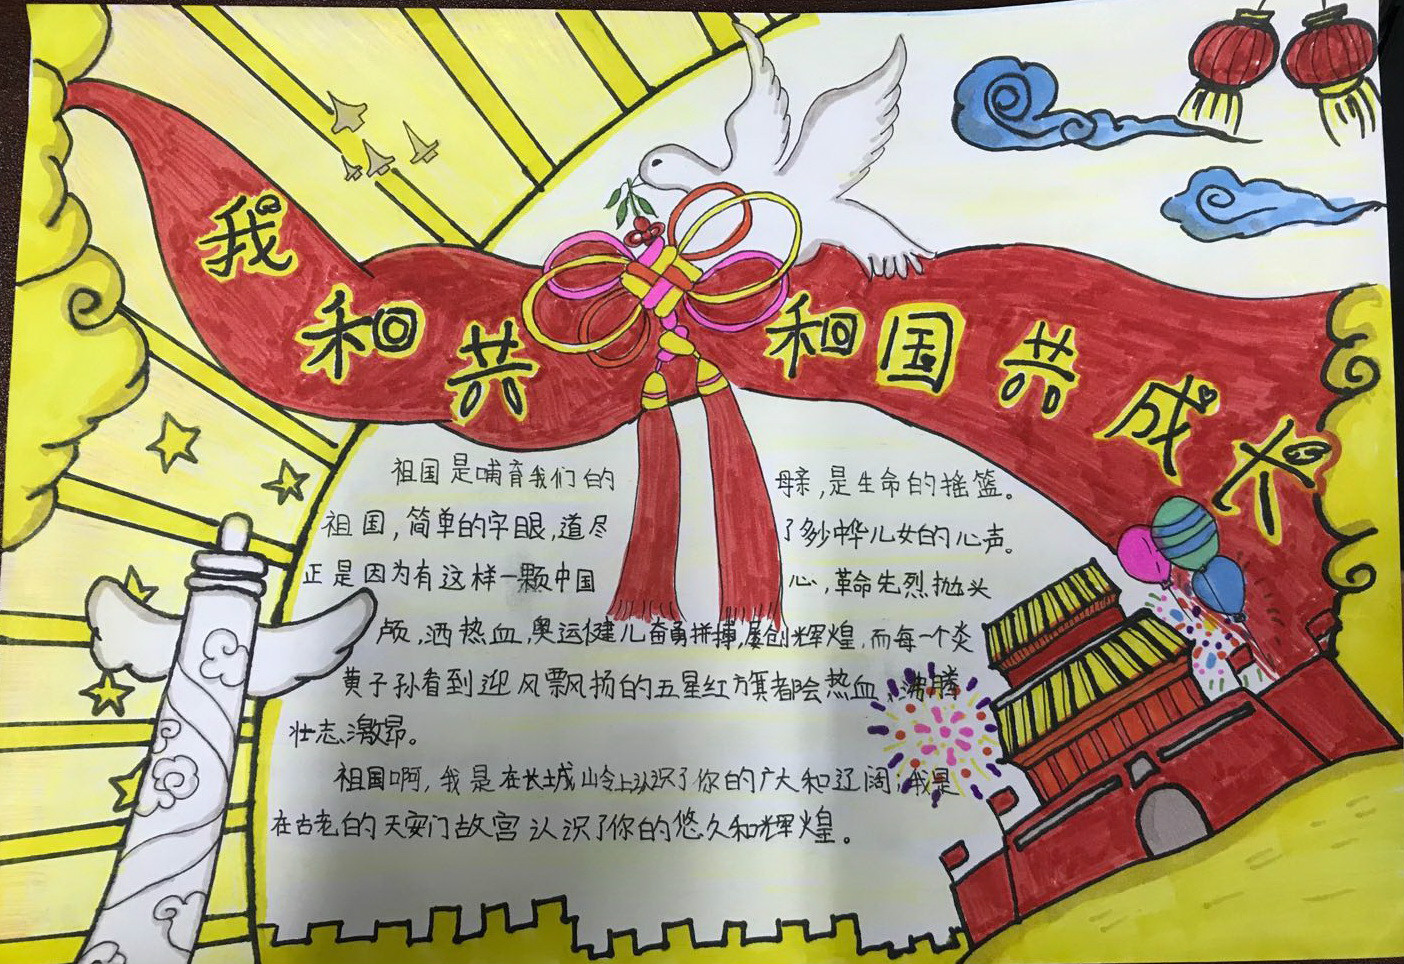 我和共和国共成长
祖国是哺育我们的母亲,是生命的摇篮。
祖国,简单的字眼,道尽了多少中华儿女的心声。
正是因为有这样一颗中国心,革命先烈抛头
颅,洒热血,奥运健儿奋勇拼搏,屡创辉煌,而每一个炎
黄子孙看到迎风飘扬的五星红旗都会热血沸腾
壮志激昂。
祖国啊,我是在长城山岭上认识了你的广大和辽阔;我是
在古老的天安门故宫认识了你的悠久和辉煌。